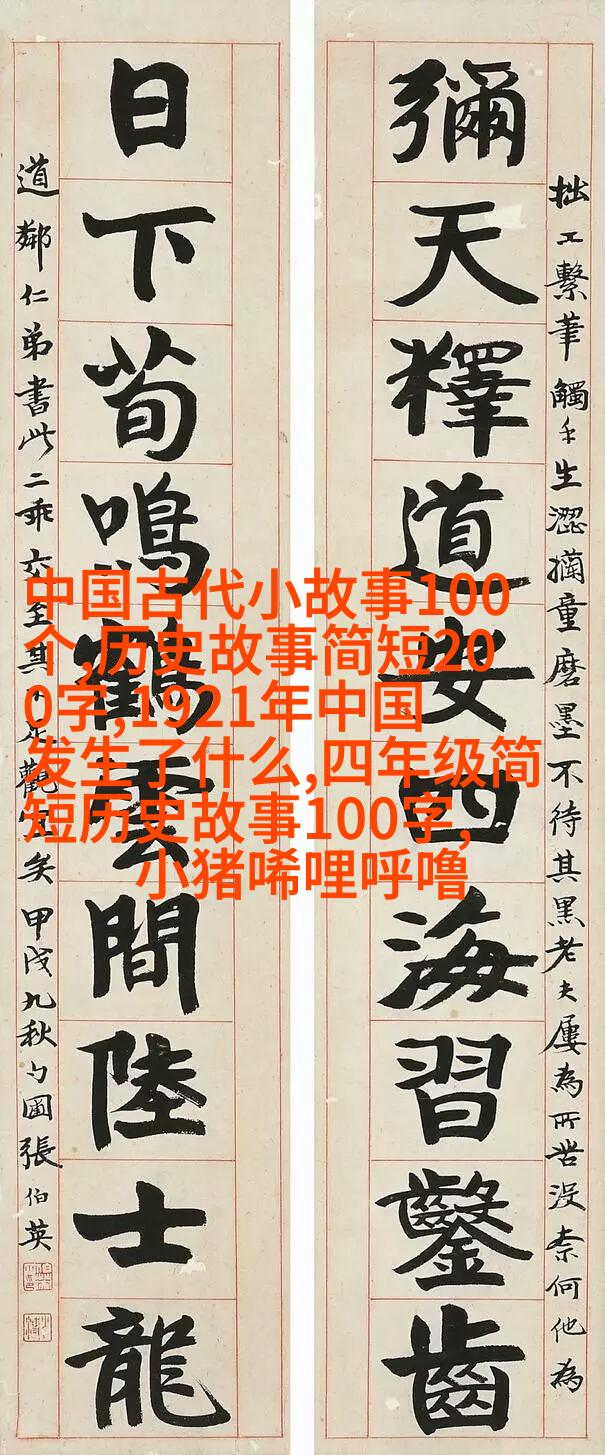 拙工繫筆觸手生澀童磨墨不待其黑老夫屢為所苦沒柰何他為
彌天釋道安四海習鑿齒
日下荀鳴鶴雲間陸士龍
道鄰仁弟書此二乖交至其觀宜矣甲戌九秋勺圃張伯英
中国古代小故事100
个,历史故事简短20
0字,1921年中国
发生了什么,四年级简
短历史故事100字,
小猪唏哩呼噜